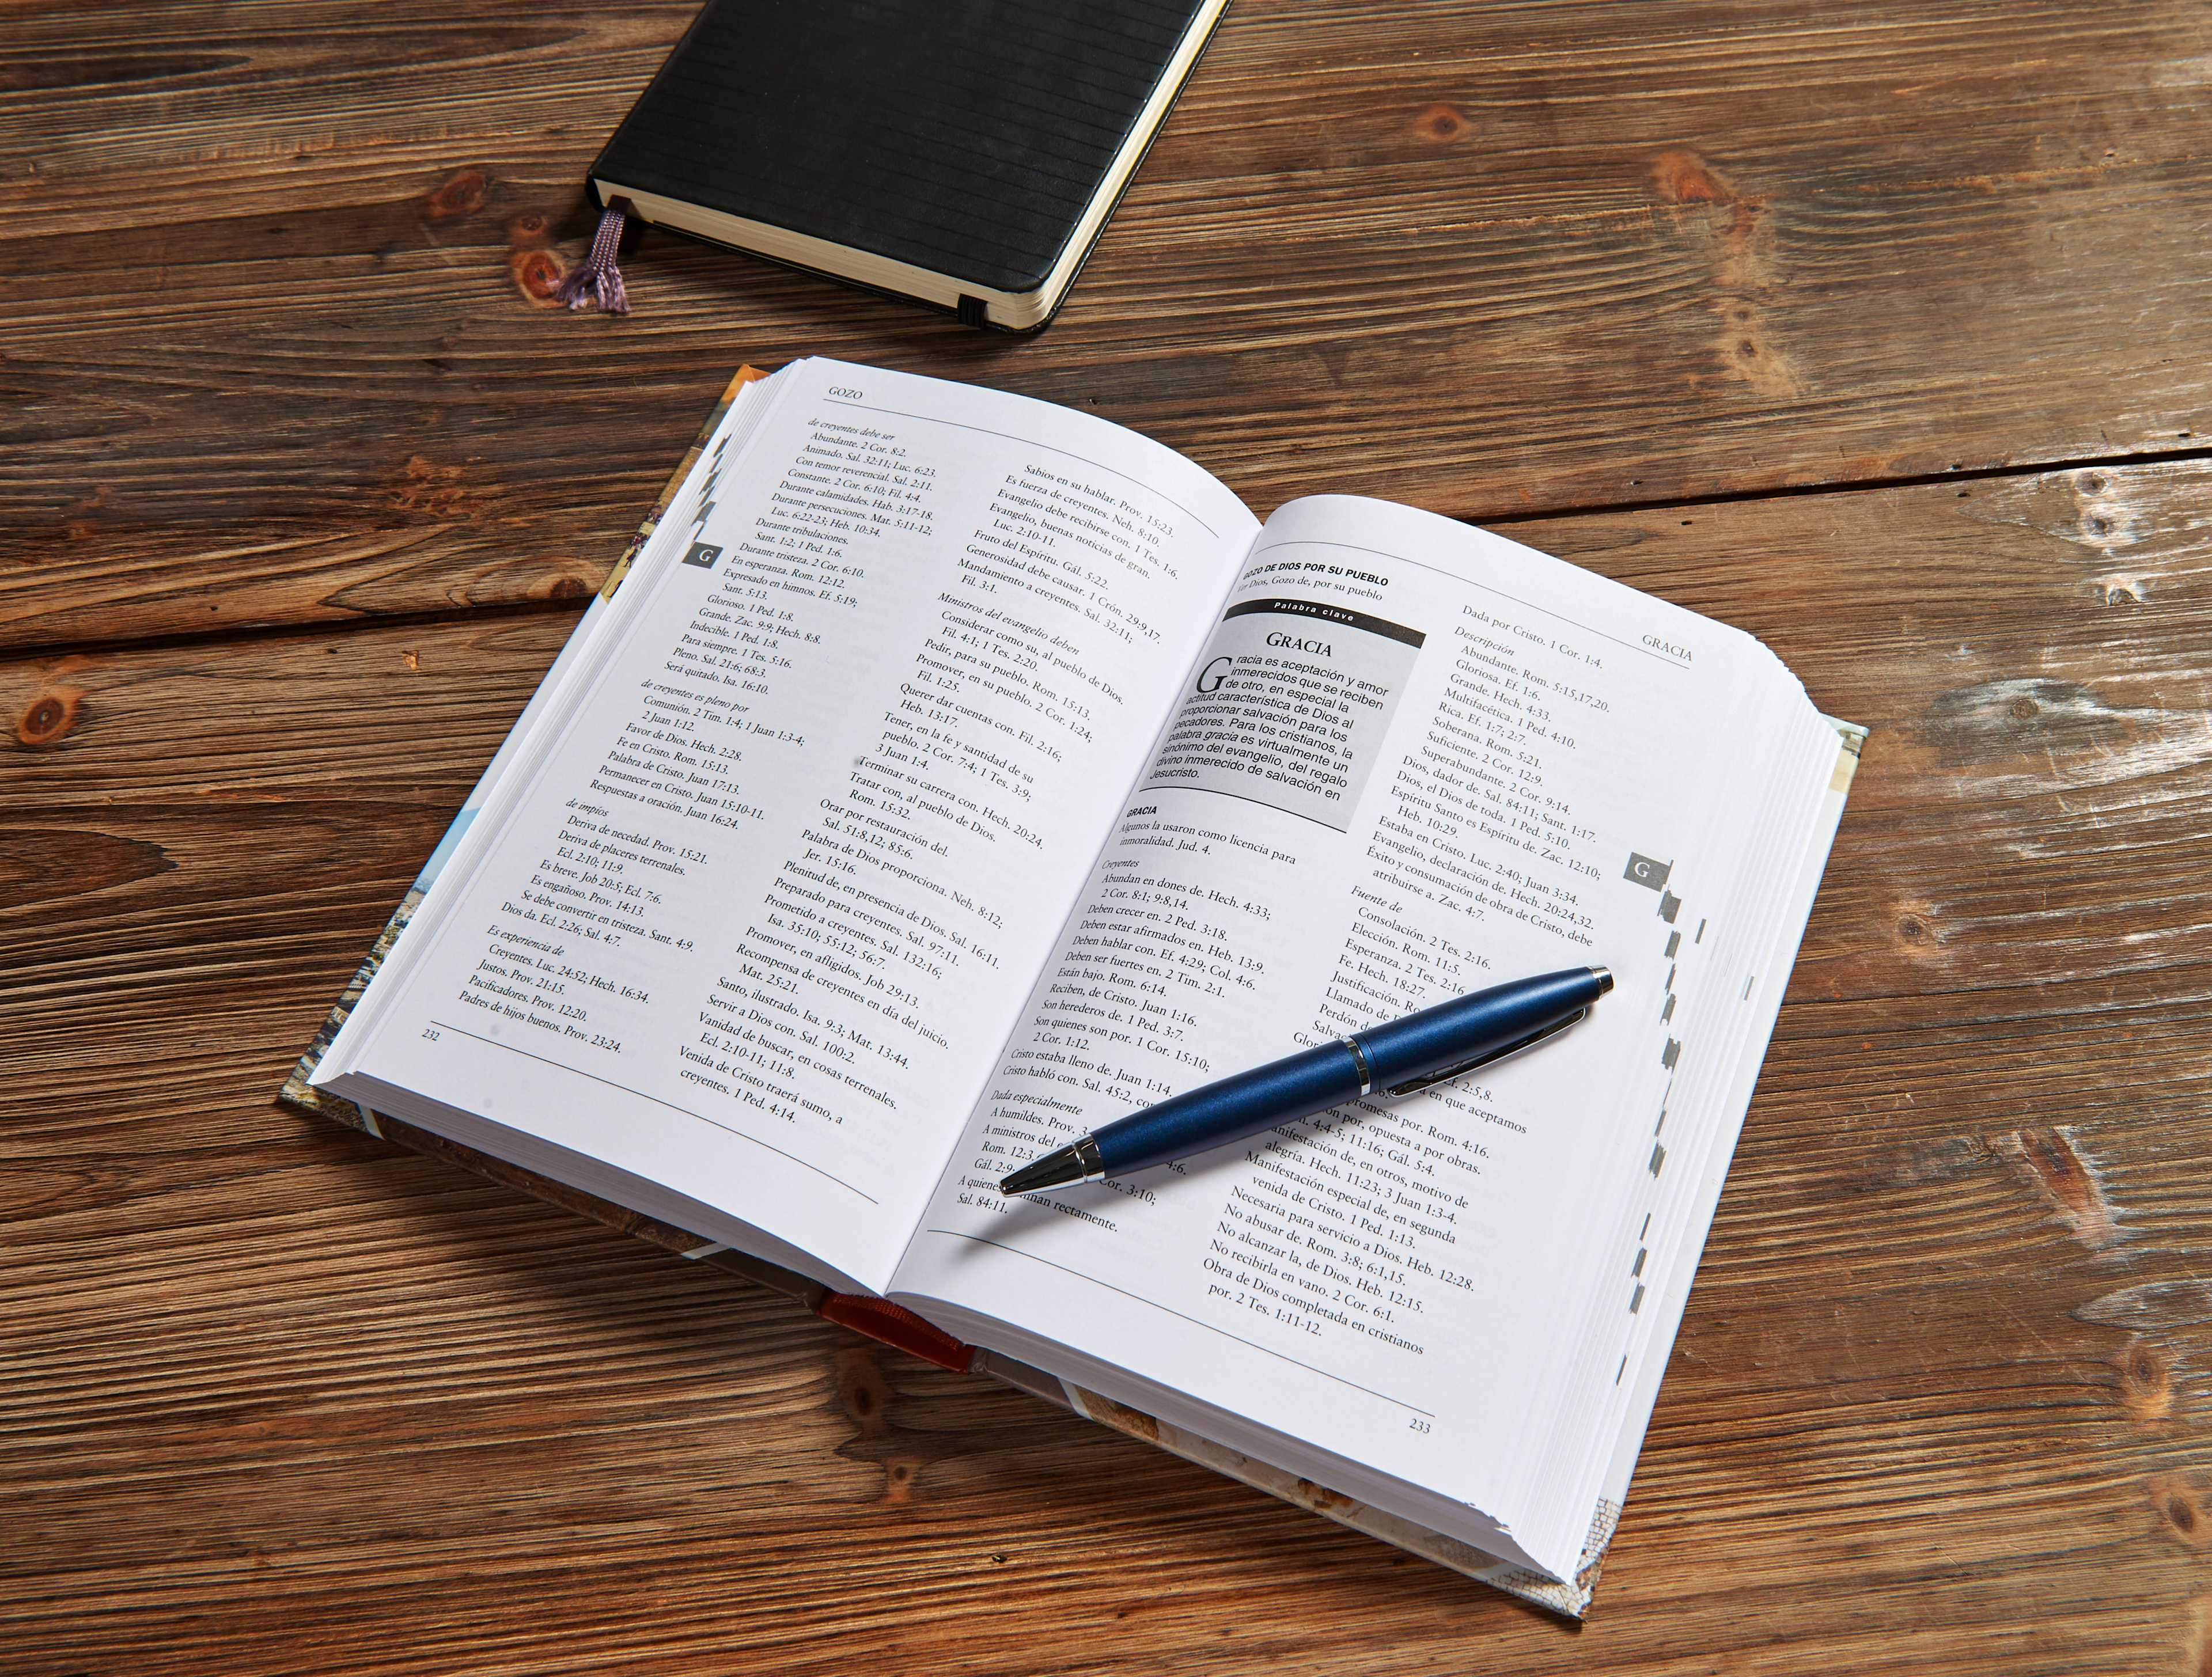 GOZO
de creyentes debe ser
Abundante. 2 Cor. 8:2.
Animado. Sal. 32:11; Luc. 6:23.
Con temor reverencial. Sal. 2:11.
Constante. 2 Cor. 6:10; Fil. 4:4.
Durante calamidades. Hab. 3:17-18.
Durante persecuciones. Mat. 5:11-12;
Luc. 6:22-23; Heb. 10:34.
Durante tribulaciones.
Sant. 1:2; 1 Ped. 1:6.
Durante tristeza. 2 Cor. 6:10.
En esperanza. Rom. 12:12.
Expresado en himnos. Ef. 5:19;
Sant. 5:13.
Glorioso. 1 Ped. 1:8.
Grande. Zac. 9:9; Hech. 8:8.
Indecible. 1 Ped. 1:8.
Para siempre. 1 Tes. 5:16.
Pleno. Sal. 21:6; 68:3.
Será quitado. Isa. 16:10.
de creyentes es pleno por
Comunión. 2 Tim. 1:4; 1 Juan 1:3-4;
2 Juan 1:12.
Favor de Dios. Hech. 2:28.
Fe en Cristo. Rom. 15:13.
Palabra de Cristo. Juan 17:13.
Permanecer en Cristo. Juan 15:10-11.
Respuestas a oración. Juan 16:24.
de impíos
Deriva de necedad. Prov. 15:21.
Deriva de placeres terrenales.
Ecl. 2:10; 11:9.
Es breve. Job 20:5; Ecl. 7:6.
Es engañoso. Prov. 14:13.
Se debe convertir en tristeza. Sant. 4:9.
Dios da. Ecl. 2:26; Sal. 4:7.
Es experiencia de
Creyentes. Luc. 24:52; Hech. 16:34.
Justos. Prov. 21:15.
Pacificadores. Prov. 12:20.
Padres de hijos buenos. Prov. 23:24.
Sabios en su hablar. Prov. 15:23.
Es fuerza de creyentes. Neh. 8:10.
Evangelio debe recibirse con. 1 Tes. 1:6.
Evangelio, buenas noticias de gran.
Luc. 2:10-11.
Fruto del Espíritu. Gál. 5:22.
Generosidad debe causar. 1 Crón. 29:9,17.
Mandamiento a creyentes. Sal. 32:11;
Fil. 3:1.
Ministros del evangelio deben
Considerar como su, al pueblo de Dios.
Fil. 4:1; 1 Tes. 2:20.
Pedir, para su pueblo. Rom. 15:13.
Promover, en su pueblo. 2 Cor. 1:24;
Fil. 1:25.
Querer dar cuentas con. Fil. 2:16;
Heb. 13:17.
Tener, en la fe y santidad de su
pueblo. 2 Cor. 7:4; 1 Tes. 3:9;
3 Juan 1:4.
Terminar su carrera con. Hech. 20:24.
Tratar con, al pueblo de Dios.
Rom. 15:32.
Orar por restauración del.
Sal. 51:8,12; 85:6.
Palabra de Dios proporciona. Neh. 8:12;
Jer. 15:16.
Plenitud de, en presencia de Dios. Sal. 16:11.
Preparado para creyentes. Sal. 97:11.
Prometido a creyentes. Sal. 132:16;
Isa. 35:10; 55:12; 56:7.
Promover, en afligidos. Job 29:13.
Recompensa de creyentes en día del juicio.
Mat. 25:21.
Santo, ilustrado. Isa. 9:3; Mat. 13:44.
Servir a Dios con. Sal. 100:2.
Vanidad de buscar, en cosas terrenales.
Ecl. 2:10-11; 11:8.
Venida de Cristo traerá sumo, a
creyentes. 1 Ped. 4:14.
G
232
GRACIA
GOZO DE DIOS POR SU PUEBLO
Dios, Gozo de, por su pueblo
Palabra clave
GRACIA
Gracia es aceptación y amor
inmerecidos que se reciben
de otro, en especial la
actitud característica de Dios al
proporcionar salvación para los
pecadores. Para los cristianos, la
palabra gracia es virtualmente un
sinónimo del evangelio, del regalo
divino inmerecido de salvación en
Jesucristo.
GRACIA
Algunos la usaron como licencia para
inmoralidad. Jud. 4.
Creyentes
Abundan en dones de. Hech. 4:33;
2 Cor. 8:1; 9:8,14.
Deben crecer en. 2 Ped. 3:18.
Deben estar afirmados en. Heb. 13:9.
Deben hablar con. Ef. 4:29; Col. 4:6.
Deben ser fuertes en. 2 Tim. 2:1.
Están bajo. Rom. 6:14.
Reciben, de Cristo. Juan 1:16.
Son herederos de. 1 Ped. 3:7.
Son quienes son por. 1 Cor. 15:10;
2 Cor. 1:12.
Cristo estaba lleno de. Juan 1:14.
Cristo habló con. Sal. 45:2,
Dada especialmente
A humildes. Prov. 3
A ministros del
Rom. 12:3,
Gál. 2:9 Cor. 3:10;
A rectamente.
Sal. 84:11.
Dada por Cristo. 1 Cor. 1:4.
Descripción
Abundante. Rom. 5:15,17,20.
Gloriosa. Ef. 1:6.
Grande. Hech. 4:33.
Multifacética. 1 Ped. 4:10.
Rica. Ef. 1:7; 2:7.
Soberana. Rom. 5:21.
Suficiente. 2 Cor. 12:9.
Superabundante. 2 Cor. 9:14.
Dios, dador de. Sal. 84:11; Sant. 1:17.
Dios, el Dios de toda. 1 Ped. 5:10.
Espíritu Santo es Espíritu de. Zac. 12:10;
Heb. 10:29.
Estaba en Cristo. Luc. 2:40; Juan 3:34.
Evangelio, declaración de. Hech. 20:24,32.
Éxito y consumación de obra de Cristo, debe
atribuirse a. Zac. 4:7.
Fuente de
Consolación. 2 Tes. 2:16.
Elección. Rom. 11:5.
Esperanza. 2 Tes. 2:16
Fe. Hech. 18:27.
Justificación.
Llamado de
Perdón
2:5,8.
en que aceptamos
promesas por. Rom. 4:16.
por, opuesta a por obras.
4:4-5; 11:16; Gál. 5:4.
Manifestación de, en otros, motivo de
alegría. Hech. 11:23; 3 Juan 1:3-4.
Manifestación especial de, en segunda
venida de Cristo. 1 Ped. 1:13.
Necesaria para servicio a Dios. Heb. 12:28.
No abusar de. Rom. 3:8; 6:1,15.
No alcanzar la, de Dios. Heb. 12:15.
No recibirla en vano. 2 Cor. 6:1.
Obra de Dios completada en cristianos
por. 2 Tes. 1:11-12.
G
233